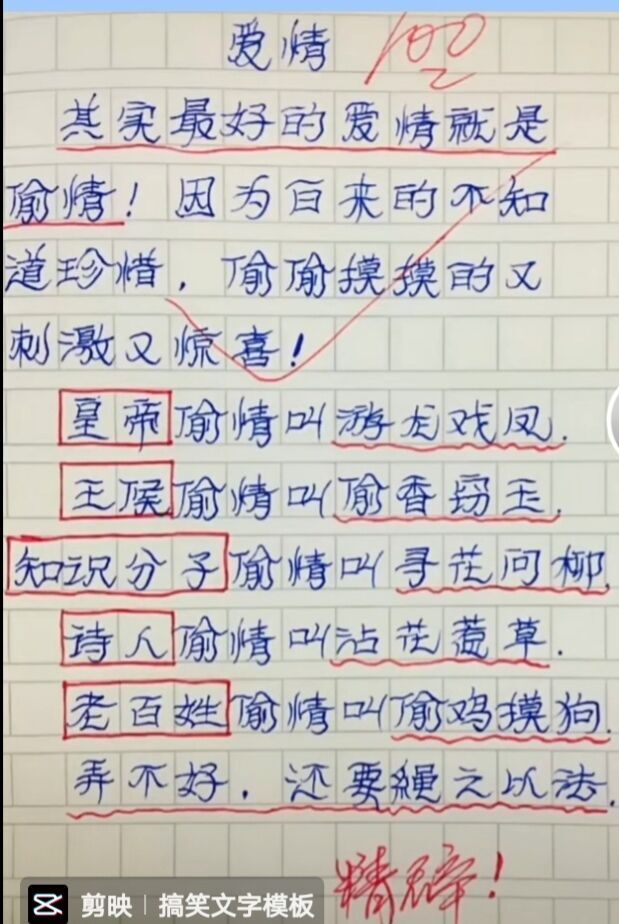 爱情 100
其实最好的爱情就是
偷情！因为自来的不知
道珍惜，偷偷摸摸的又
刺激又惊喜！
皇帝偷情叫游龙戏凤.
王候偷情叫偷香窃玉.
知识分子偷情叫寻花问柳.
诗人偷情叫沾花惹草.
老百姓偷情叫偷鸡摸狗.
弄不好．还要绳之以法.
精辟！
剪映 搞笑文字模板